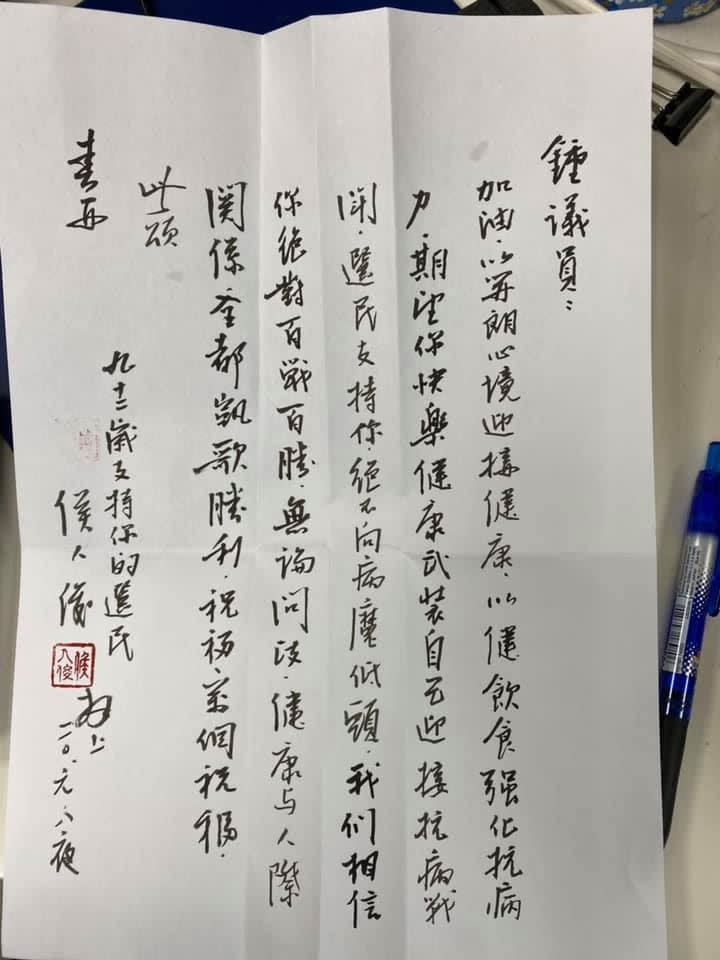 鍾議員：
加油，以开朗心境迎接健康，以健飲食强化抗病
力，期望你快樂健康武裝自己迎接抗病戰
鬪，選民支持你，絕不向病魔低頭，我們相信
你絕對百戰百勝，無論问政，健康与人際
関係全都凱歌勝利，祝福，萬個祝福，
此頌
春
九十二歲支持你的選民
侯人俊 上
侯人俊
二〇.元.八夜